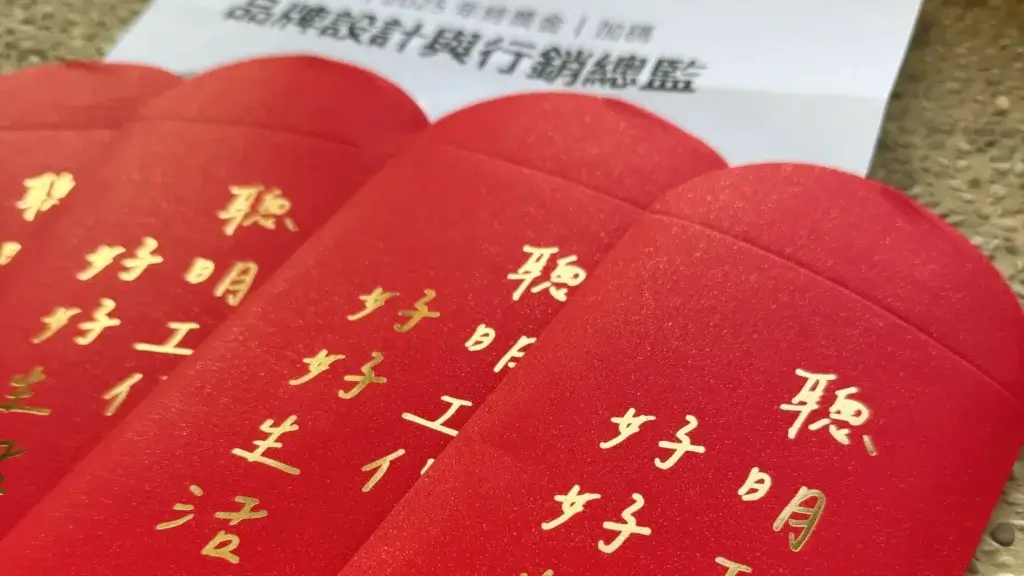 2025 年終獎金 | 加碼
品牌設計與行銷總監
聰
好明
好工
生
聰明工
好好生活
聰明工
好好生活
聰明工
好好生